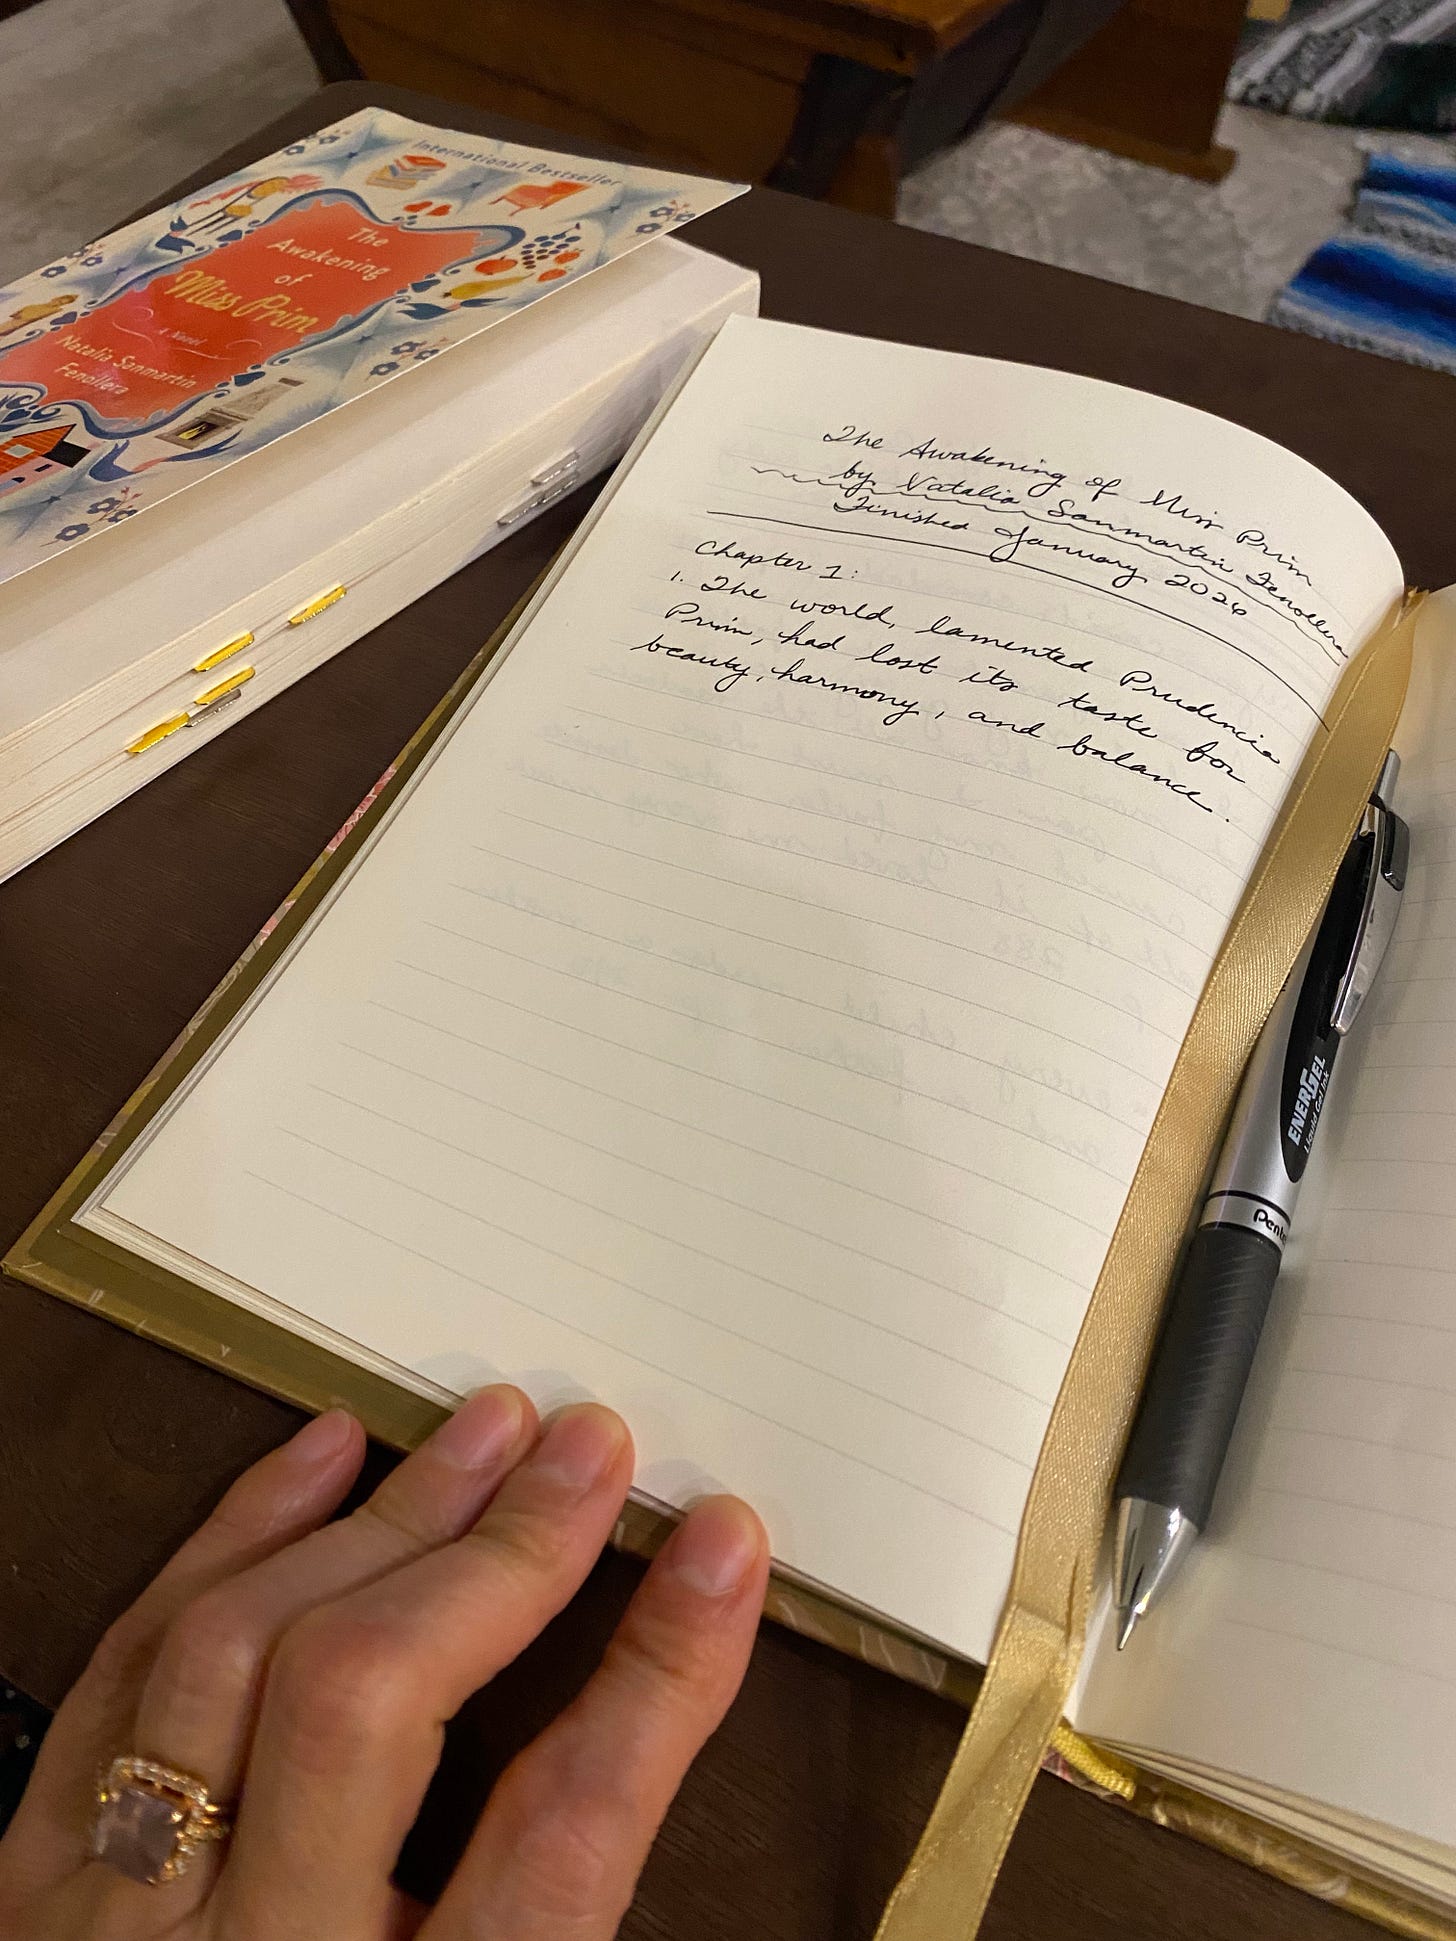 International Bestseller
The
Awakening
of
Miss Prim
A Novel
Natalia Sanmartin
Fenollera
The Awakening of Miss Prim
by Natalia Sanmartin Fenollera
Finished January 2026
Chapter 1:
1. The world, lamented Prudencia
Prim, had lost its taste for
beauty, harmony, and balance.
ENERGEL
Liquid Gel Ink